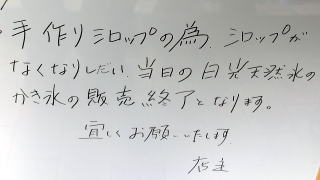 手作りシロップの為、シロップが
なくなりしだい、当日の日光天然氷の
かき氷の販売終了となります。
宜しくお願いいたします
店主